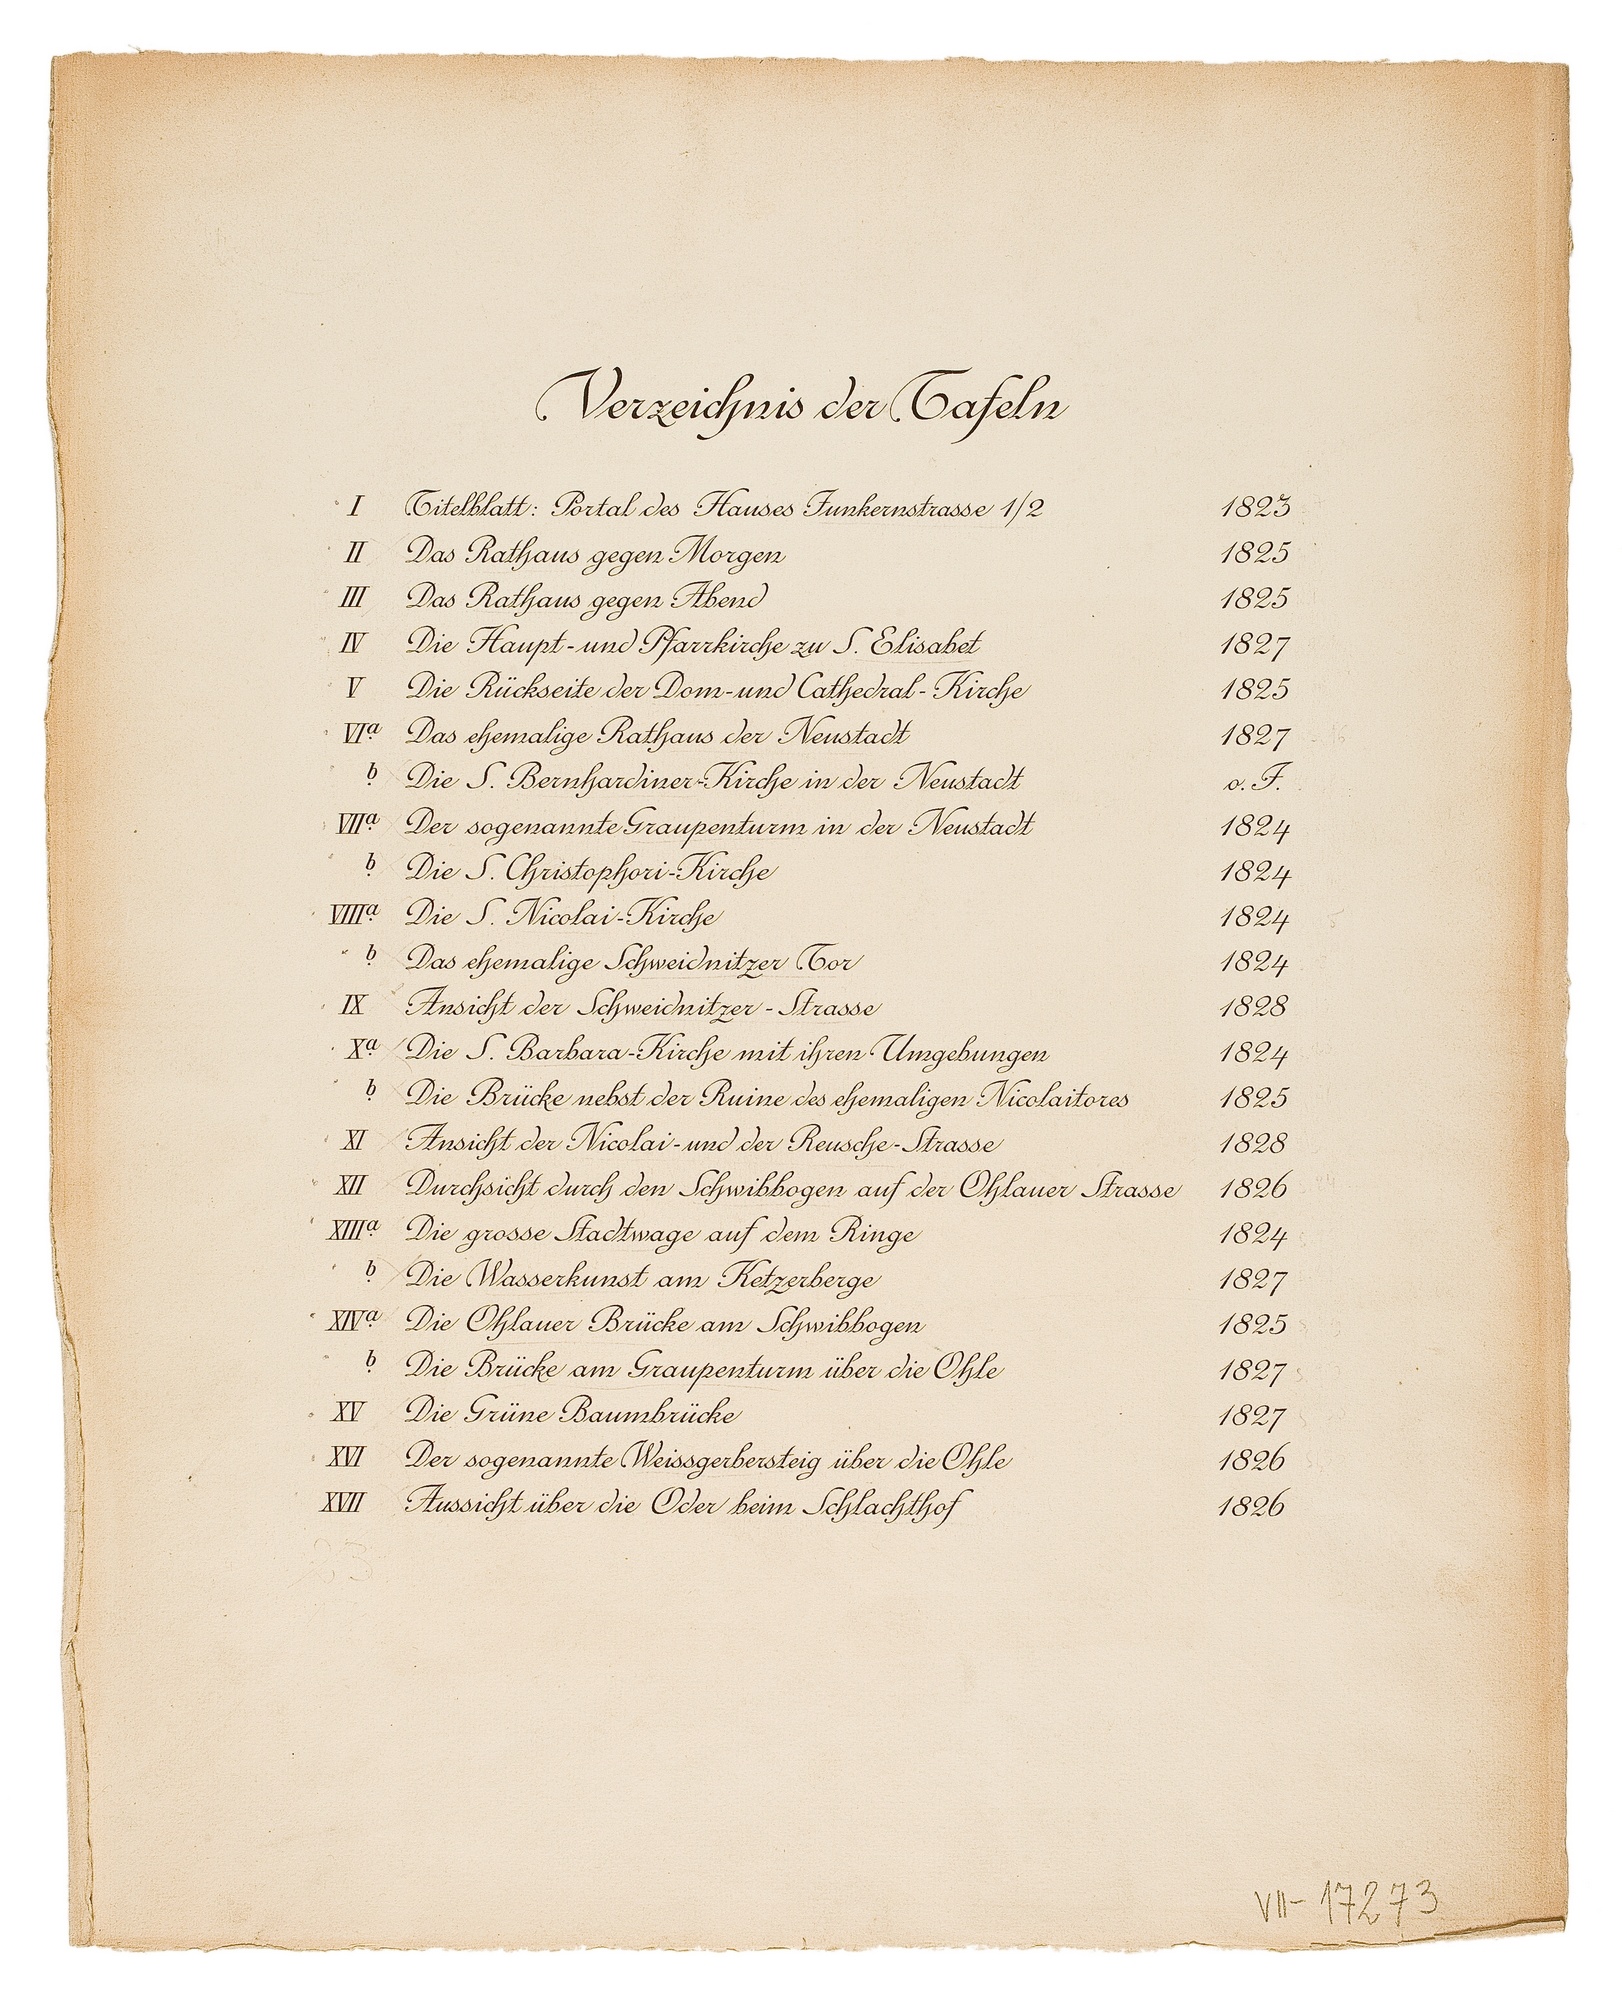 Verzeichnis der Tafeln
I Titelblatt: Portal des Hauses Junkernstrasse 1/2 1823
II Das Rathaus gegen Morgen 1825
III Das Rathaus gegen Abend 1825
IV Die Haupt- und Pfarrkirche zu S. Elisabet 1827
V Die Rückseite der Dom- und Cathedral-Kirche 1825
VIa Das ehemalige Rathaus der Neustadt 1827
b Die S. Bernhardiner-Kirche in der Neustadt o. J.
VIIa Der sogenannte Graupenturm in der Neustadt 1824
b Die S. Christophori-Kirche 1824
VIIIa Die S. Nicolai-Kirche 1824
b Das ehemalige Schweidnitzer Tor 1824
IX Ansicht der Schweidnitzer-Strasse 1828
Xa Die S. Barbara-Kirche mit ihren Umgebungen 1824
b Die Brücke nebst der Ruine des ehemaligen Nicolaitores 1825
XI Ansicht der Nicolai- und der Reusche-Strasse 1828
XII Durchsicht durch den Schwibbogen auf der Ohlauer Strasse 1826
XIIIa Die grosse Stadtwage auf dem Ringe 1824
b Die Wasserkunst am Ketzerberge 1827
XIVa Die Ohlauer Brücke am Schwibbogen 1825
b Die Brücke am Graupenturm über die Ohle 1827
XV Die Grüne Baumbrücke 1827
XVI Der sogenannte Weissgerbersteig über die Ohle 1826
XVII Aussicht über die Oder beim Schlachthof 1826
23
VII-17273